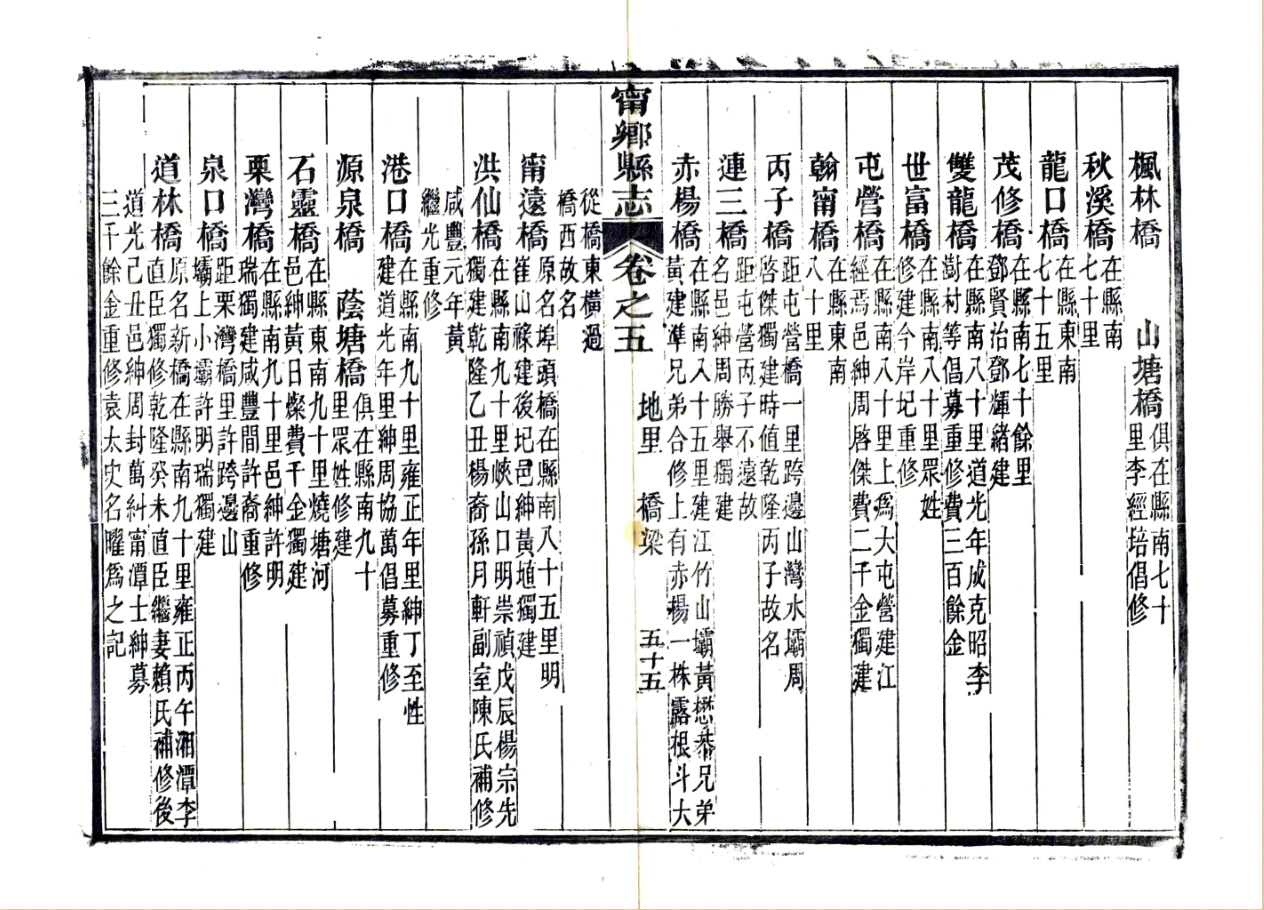 楓林橋　山塘橋俱在縣南七十
里李經培倡修
秋溪橋在縣南
七十里
龍口橋在縣東南
七十五里
茂修橋在縣南七十餘里
鄧賢治鄧輝緒建
雙龍橋在縣南八十里道光年成克昭李
澍村等倡募重修費三百餘金
世富橋在縣南八十里眾姓
修建今岸圮重修
屯營橋在縣南八十里上為大屯營建江
經焉邑紳周啓傑費二千金獨建
翰甯橋在縣東南
八十里
丙子橋距屯營橋一里跨邊山灣水壩周
啓傑獨建時值乾隆丙子故名
連三橋距屯營丙子不遠故
名邑紳周勝舉獨建
赤楊橋在縣南八十五里建江竹山壩黃懋恭兄弟
黃建準兄弟合修上有赤楊一株露根斗大
甯鄉縣志　卷之五　地里　橋梁　五十五
從橋東橫過
橋西故名
甯遠橋原名埠頭橋在縣南八十五里明
崔山篆建後圮邑紳黃埴獨建
洪仙橋在縣南九十里峽山口明崇禎戊辰楊宗先
獨建乾隆乙丑楊裔孫月軒副室陳氏補修
咸豐元年黃
繼光重修
港口橋在縣南九十里雍正年里紳丁至性
建道光年里紳周協萬倡募重修
源泉橋　蔭塘橋俱在縣南九十
里眾姓修建
石靈橋在縣東南九十里燒塘河
邑紳黃日燦費千金獨建
栗灣橋在縣南九十里邑紳許明
瑞獨建咸豐間許裔重修
泉口橋距栗灣橋里許跨邊山
壩上小壩許明瑞獨建
道林橋原名新橋在縣南九十里雍正丙午湘潭李
直臣獨修乾隆癸未直臣繼妻賴氏補修後
道光己丑邑紳周封萬糾甯潭士紳募
三千餘金重修袁太史名曜為之記